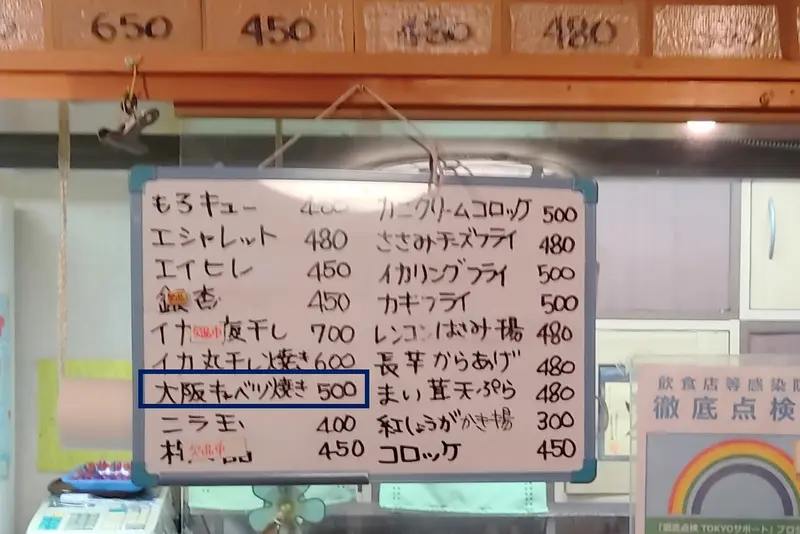 650 450 480 480
もろキュー
エシャレット 480
エイヒレ 450
銀杏 450
イカ 夜干し 700
イカ丸干し焼き 600
大阪キャベツ焼き 500
ニラ玉 400
450
カニクリームコロッケ 500
ささみチーズフライ 480
イカリングフライ 500
カキフライ 500
レンコンはさみ揚 480
長芋からあげ 480
まい茸天ぷら 480
紅しょうがかき揚 300
コロッケ 450
飲食店等感染防
徹底点検
「徹底点検 TOKYOサポート」プロ